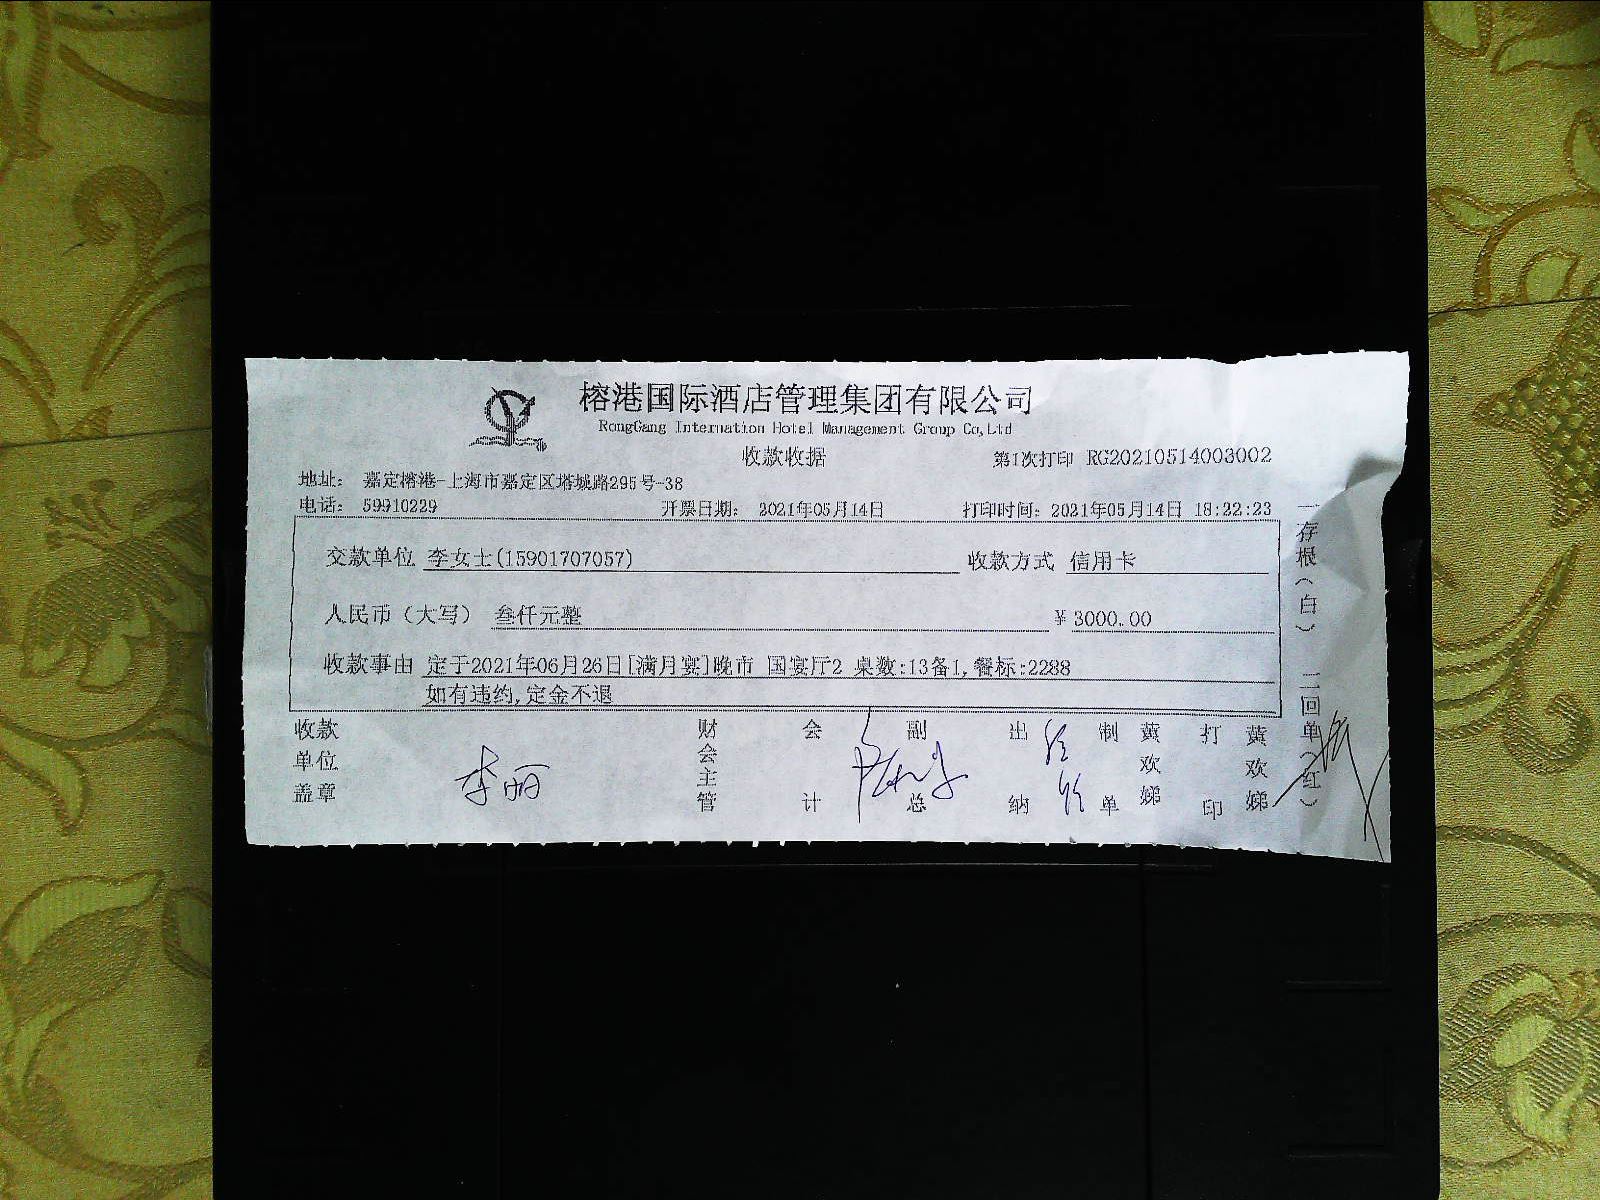 榕港国际酒店管理集团有限公司
RongGang Internation Hotel Management Group Co,Ltd
收款收据
第1次打印 RG20210514003002
地址: 嘉定榕港-上海市嘉定区塔城路295号-38
电话: 59910229 开票日期: 2021年05月14日 打印时间: 2021年05月14日 18:22:23
交款单位 李女士(15901707057) 收款方式 信用卡
人民币（大写） 叁仟元整 ¥ 3000.00
收款事由 定于2021年06月26日[满月宴]晚市 国宴厅2 桌数:13备1,餐标:2288
如有违约,定金不退
收款单位盖章 李丽 财会主管 会计 副总 出纳 制单 黄欢娣 打印 黄欢娣
一存根（白） 二回单（红）